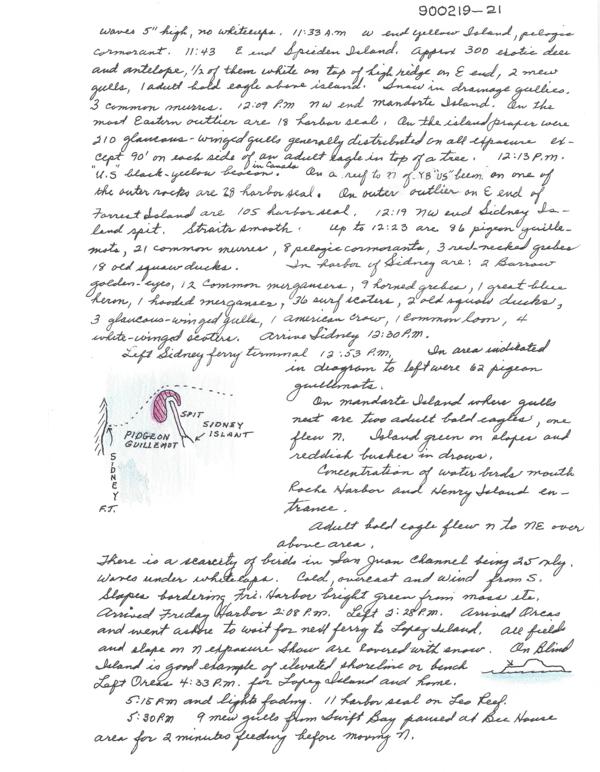 900219-21
waves 5" high, no whitecaps. 11:33 A.M W end Yellow Island, pelagic
cormorant. 11:43 E end Spieden Island. Approx 300 exotic deer
and antelope, 1/2 of them white on top of high ridge on E end, 2 mew
gulls, 1 adult bald eagle above island. Snow in drainage gullies.
3 common murres. 12:09 P.M NW end mandorte Island. On the
most Eastern outlier are 18 harbor seal. On the island proper were
210 glaucous-winged gulls generally distributed on all exposure ex-
cept 90' on each side of an adult eagle in top of a tree. 12:13 P.M.
"U.S" black-yellow beacon. in Canada On a reef to N of YB "US" on one of
the outer rocks are 28 harbor seal. On outer outlier on E end of
Forrest Island are 105 harbor seal. 12:19 NW end Sidney Is-
land spit. Straits smooth. Up to 12:23 are 86 pigeon guille-
mots, 21 common murres, 8 pelagic cormorants, 3 red-necked grebes
18 old squaw ducks. In harbor of Sidney are: 2 Barrow
golden-eyes, 12 Common mergansers, 9 horned grebes, 1 great blue
heron, 1 hooded merganser, 36 surf scoters, 2 old squaw ducks,
3 glaucous-winged gulls, 1 american crow, 1 common loon, 4
white-winged scoters. Arrive Sidney 12:30 P.M.
Left Sidney ferry terminal 12:53 P.M. In area indicated
in diagram to left were 62 pigeon
guillemots.
SPIT
SIDNEY
ISLANT
PIDGEON
GUILLEMOT
SIDNEY
F.T.
On mandorte Island where gulls
nest are two adult bald eagles, one
flew N. Island green on slopes and
reddish bushes in draws.
Concentration of water birds mouth
Roche Harbor and Henry Island en-
trance.
Adult bald eagle flew N to NE over
above area.
There is a scarcity of birds in San Juan Channel being 25 only.
Waves under whitecaps. Cold, overcast and wind from S.
Slopes bordering Fri. Harbor bright green from moss etc.
Arrived Friday Harbor 2:08 P.M. Left 3:28 P.M. Arrived Orcas
and went ashore to wait for next ferry to Lopez Island. All fields
and slope on N exposure Shaw are covered with snow. On Blind
Island is good example of elevated shoreline or bench
Left Orcas 4:33 P.M. for Lopez Island and home.
5:15 PM and lights fading. 11 harbor seal on Leo Reef.
5:30 PM 9 mew gulls from Swift Bay paused at Bee House
area for 2 minutes feeding before moving N.